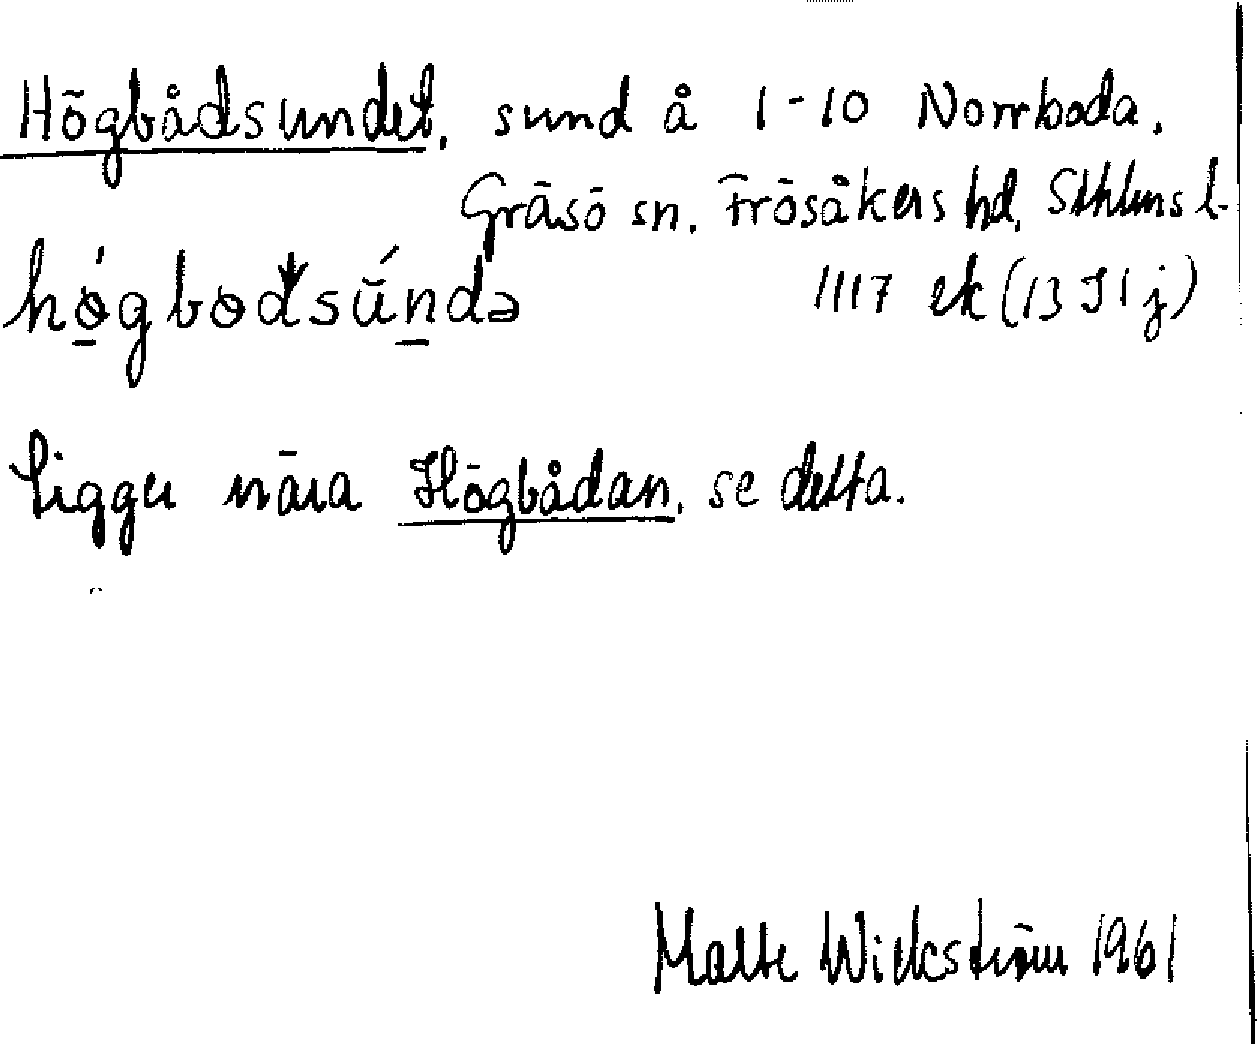 Högbådsundet, sund å 1-10 Norrboda,
Gräsö sn. Frösåkers hd, Sthlms l.
hǿ̱gbodsú̄ṉdə 1117 ek (13 I 1 j)
Ligger nära Högbådan, se detta.
Malte Wickström 1961